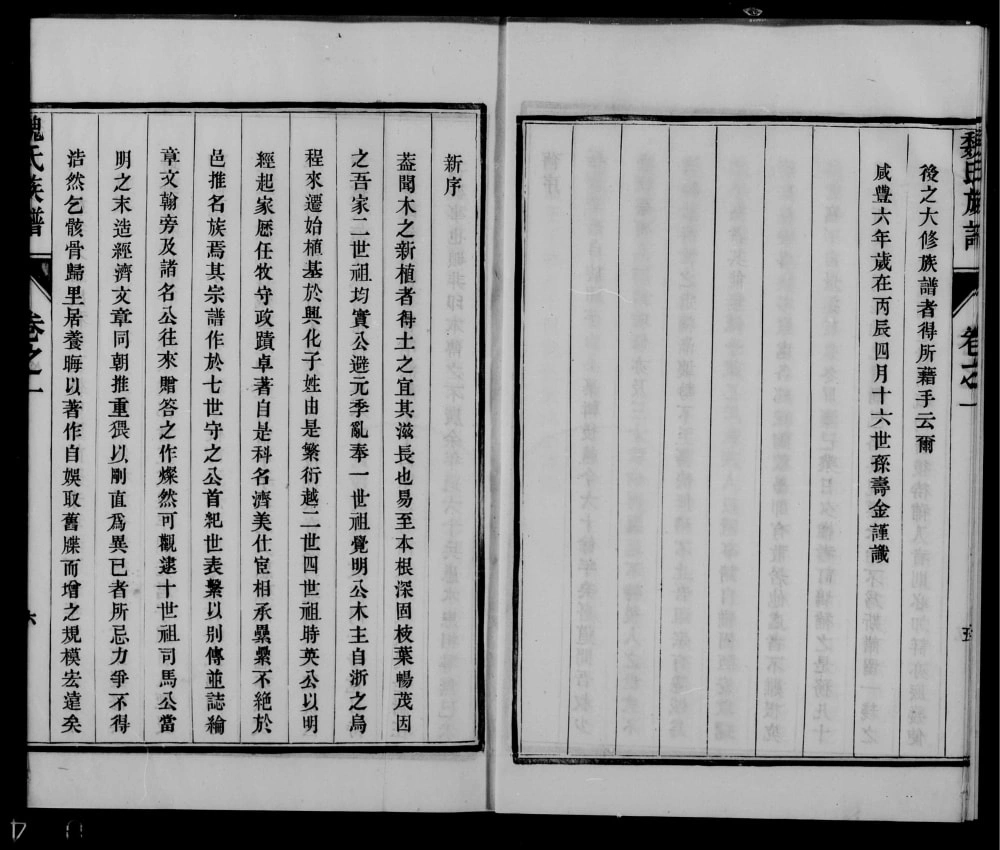 後之大修族譜者得所藉手云爾
咸豐六年歲在丙辰四月十六世孫壽金謹識
魏氏族譜
卷之一
五
新序
葢聞木之新植者得土之宜其滋長也易至本根深固枝葉暢茂因
之吾家二世祖均實公避元季亂奉一世祖覺明公木主自浙之烏
程來遷始植基於興化子姓由是繁衍越二世四世祖時英公以明
經起家歷任牧守政蹟卓著自是科名濟美仕宦相承纍纍不絕於
邑推名族焉其宗譜作於七世守之公首䄫世表繫以別傳並誌綸
章文翰旁及諸名公往來贈答之作燦然可觀逮十世祖司馬公當
明之末造經濟文章同朝推重猥以剛直為異已者所忌力爭不得
浩然乞骸骨歸里居養晦以著作自娛取舊牒而增之規模宏遠矣
魏氏族譜
卷之一
六